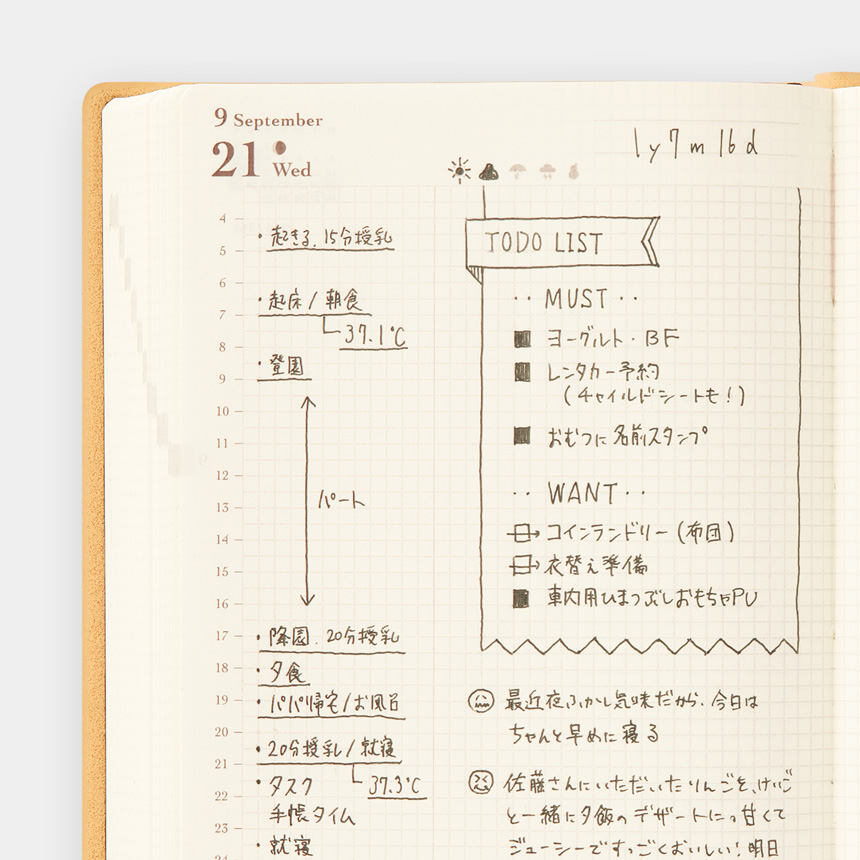 9 September
21 Wed
1y7m16d
4
・起きる、15分授乳
5
6
・起床/朝食
7
37.1℃
8
・登園
9
10
11
12
パート
13
14
15
16
17
・降園、20分授乳
18
・夕食
19
・パパ帰宅/お風呂
20
・20分授乳/就寝
21
・タスク
37.3℃
22
手帳タイム
23
・就寝
24
TODO LIST
・・MUST・・
ヨーグルト・BF
レンタカー予約
(チャイルドシートも!)
おむつに名前スタンプ
・・WANT・・
コインランドリー(布団)
衣替え準備
車内用ひまつぶしおもちゃPU
最近夜ふかし気味だから、今日は
ちゃんと早めに寝る
佐藤さんにいただいたりんごを、けいご
と一緒に夕飯のデザートに。甘くて
ジューシーですっごくおいしい!明日